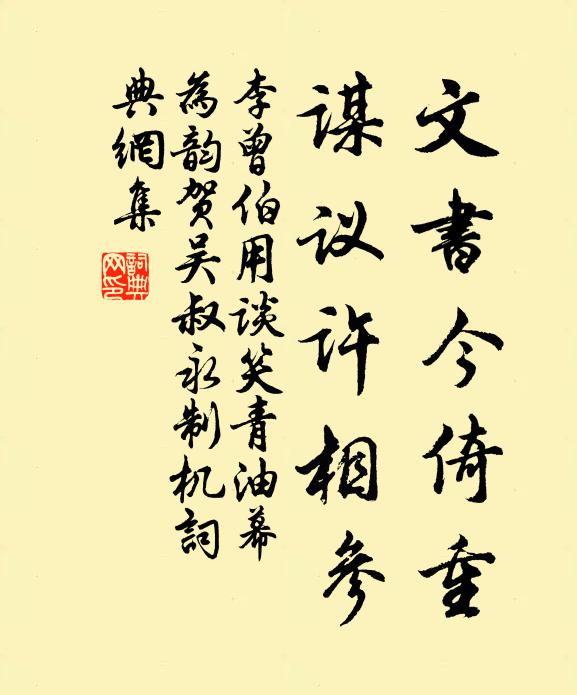 文書今倚重
谋议许相參
李曾伯用谈笑青油幕
為韵贺吴叔永制机詞
典網集
詞典網印